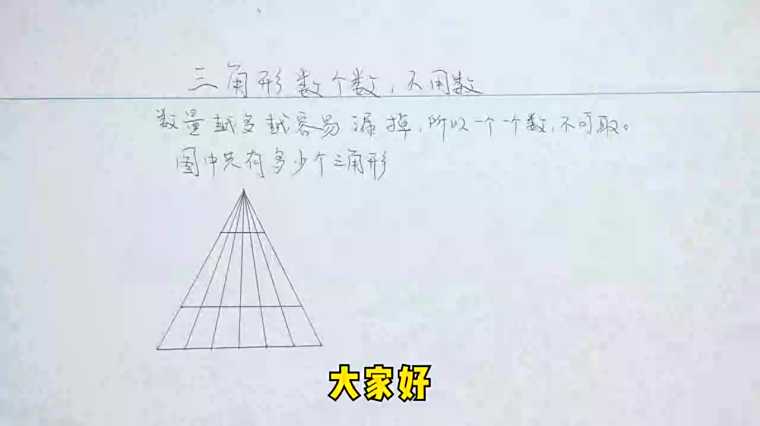 三角形数个数，不用数
数量越多越容易漏掉，所以一个个数，不可取。
图中共有多少个三角形
大家好